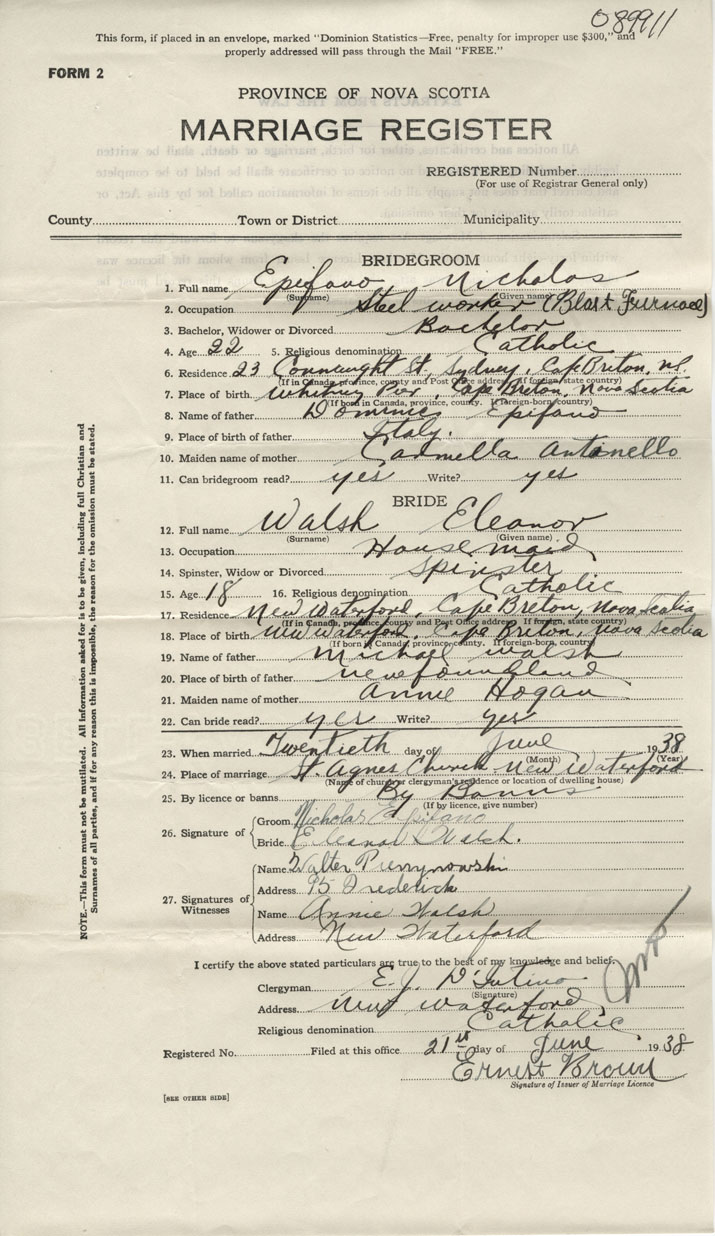 089911
This form, if placed in an envelope, marked "Dominion Statistics—Free, penalty for improper use $300," and
properly addressed will pass through the Mail "FREE."
FORM 2
PROVINCE OF NOVA SCOTIA
MARRIAGE REGISTER
REGISTERED Number
(For use of Registrar General only)
County Town or District Municipality
BRIDEGROOM
1. Full name Epifano Nicholas
(Surname) (Given name)
2. Occupation Steel worker (Blast Furnace)
3. Bachelor, Widower or Divorced Bachelor
4. Age 22 5. Religious denomination Catholic
6. Residence 23 Connaught St, Sydney, Cape Breton, N.S.
(If in Canada, province, county and Post Office address. If foreign, state country)
7. Place of birth Whitney Pier, Cape Breton, Nova Scotia
(If born in Canada, province, county. If foreign-born, country)
8. Name of father Dominic Epifano
9. Place of birth of father Italy.
10. Maiden name of mother Carmella Antonello
11. Can bridegroom read? yes Write? yes
BRIDE
12. Full name Walsh Eleanor
(Surname) (Given name)
13. Occupation House maid
14. Spinster, Widow or Divorced Spinster
15. Age 18 16. Religious denomination Catholic
17. Residence New Waterford, Cape Breton, Nova Scotia
(If in Canada, province, county and Post Office address. If foreign, state country)
18. Place of birth New Waterford, Cape Breton, Nova Scotia
(If born in Canada, province, county. If foreign-born, country)
19. Name of father Michael Walsh
20. Place of birth of father Newfoundland
21. Maiden name of mother Annie Hogan
22. Can bride read? yes Write? yes
23. When married Twentieth day of June 1938
(Month) (Year)
24. Place of marriage St. Agnes Church New Waterford
(Name of church or clergyman's residence or location of dwelling house)
25. By licence or banns By Banns
(If by licence, give number)
26. Signature of
Groom Nicholas Epifano
Bride Eleanor Walsh.
27. Signatures of Witnesses
Name Walter
Address 95 Frederick
Name Annie Walsh
Address New Waterford
I certify the above stated particulars are true to the best of my knowledge and belief.
Clergyman E. J. D'Intino
(Signature)
Address New Waterford,
Religious denomination Catholic
Registered No. Filed at this office 21st day of June 1938
Ernest Brown
Signature of Issuer of Marriage Licence
[SEE OTHER SIDE]
NOTE.—This form must not be mutilated. All information asked for is to be given, including full Christian and
Surnames of all parties, and if for any reason this is impossible, the reason for the omission must be stated.